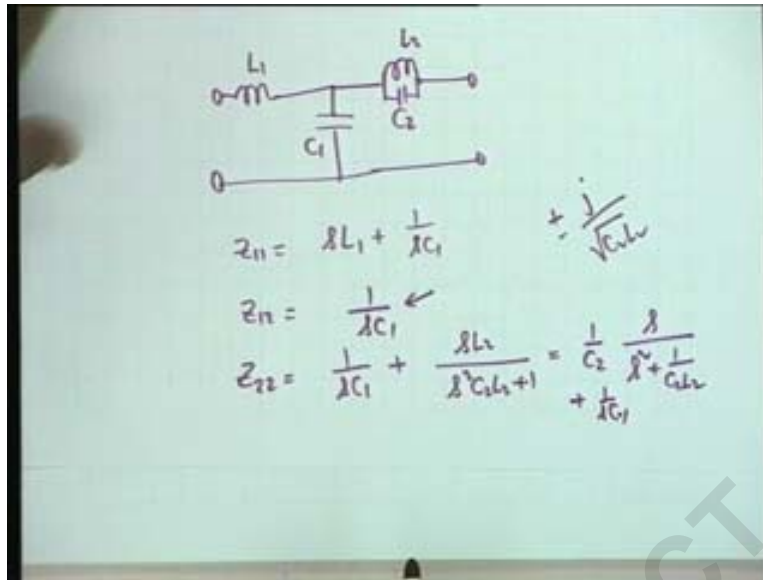 L₁
L₂
C₂
C₁
± j/√C₂L₂
Z₁₁ = sL₁ + 1/sC₁
Z₁₂ = 1/sC₁ ←
Z₂₂ = 1/sC₁ + sL₂/s²C₂L₂+1 = 1/C₂ s/s²+1/C₂L₂
+ 1/sC₁
CT